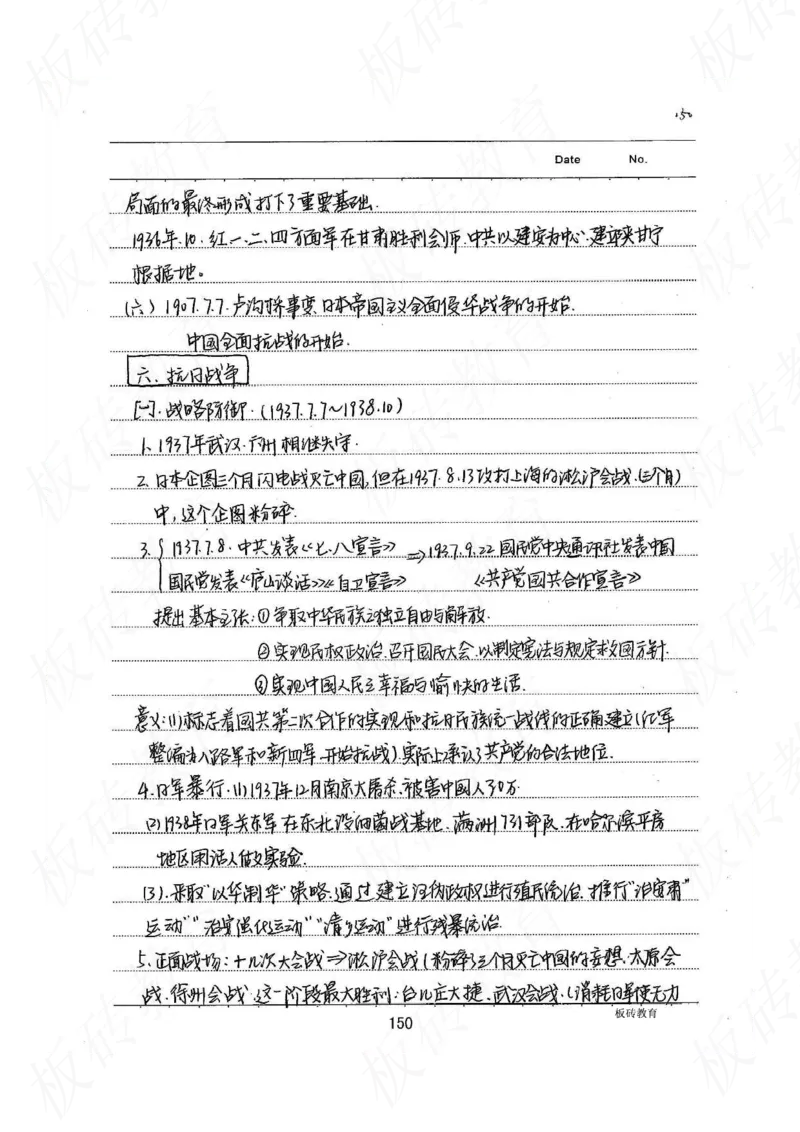 150
Date No.
局面的最终形成打下了重要基础.
1936年.10.红一.二.四方面军在甘肃胜利会师.中共以延安为中心.建立陕甘宁
根据地。
(六) 1907.7.7.卢沟桥事变.日本帝国主义全面侵华战争的开始.
中国全面抗战的开始.
六、抗日战争
[一].战略防御.(1937.7.7~1938.10)
1. 1937年武汉.广州相继失守.
2. 日本企图三个月闪电战灭亡中国,但在1937.8.13攻打上海的淞沪会战.(三个月)
中,这个企图粉碎.
3. 1937.7.8.中共发表《七.八宣言》 ⇒1937.9.22国民党中央通讯社发表中国
国民党发表《庐山谈话》《自卫宣言》 《共产党国共合作宣言》
提出基本主张:①争取中华民族之独立自由与解放.
②实现民权政治.召开国民大会.以制定宪法与规定救国方针.
③实现中国人民之幸福与愉快的生活.
意义:(1)标志着国共第二次合作的实现和抗日民族统一战线的正确建立(红军
整编为八路军和新四军.开始抗战).实际上承认了共产党的合法地位.
4.日军暴行.(1)1937年12月南京大屠杀.被害中国人30万.
(2)1938年日军关东军在东北设细菌战基地.满洲731部队.在哈尔滨平房
地区用活人做实验.
(3).采取"以华制华"策略.通过建立汪伪政权进行殖民统治.推行"治安肃"
运动""治安强化运动""清乡运动"进行残暴统治.
5.正面战场:十几次大会战⇒淞沪会战(粉碎了三个月灭亡中国的妄想.太原会
战.徐州会战.这一阶段最大胜利:台儿庄大捷.武汉会战.(消耗日军使无力
150
板砖教育